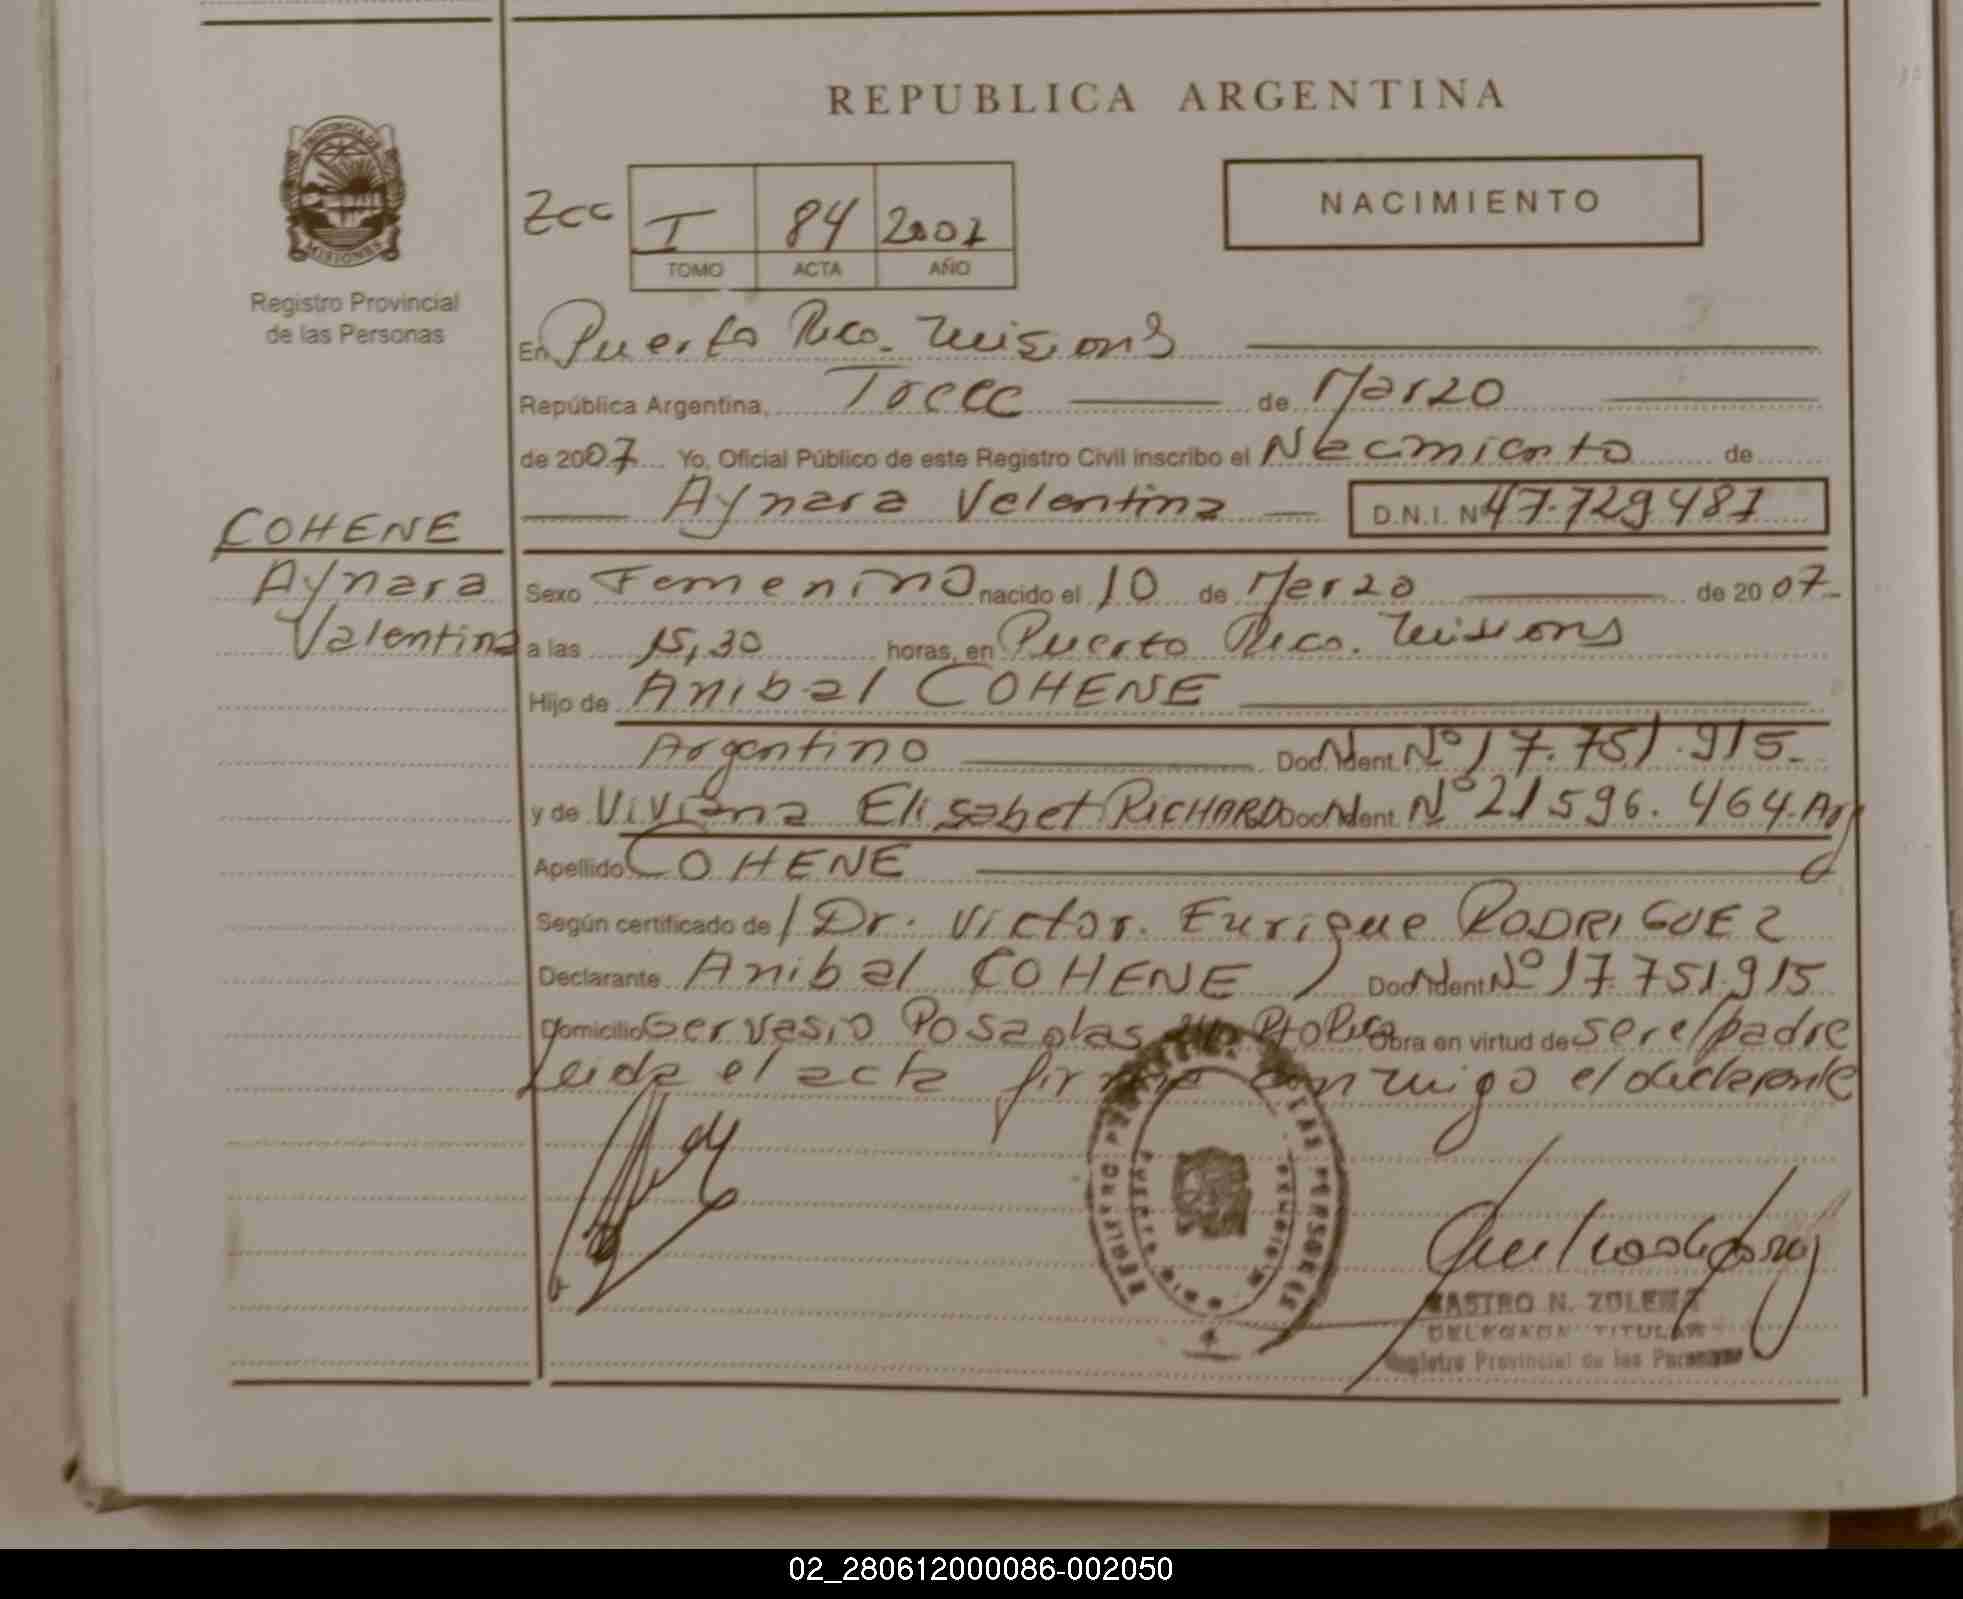 REPUBLICA ARGENTINA
PROVINCIA DE
MISIONES
Registro Provincial
de las Personas
NACIMIENTO
Zcc I 84 2007
TOMO ACTA AÑO
En Puerto Rico. Misiones
República Argentina, Trece de Marzo
de 2007 Yo, Oficial Público de este Registro Civil inscribo el Nacimiento de
Aynara Valentina D.N.I. Nº 47.729.481
COHENE
Aynara
Valentina
Sexo Femenino nacido el 10 de Marzo de 2007.-
a las 15,30 horas, en Puerto Rico. Misiones
Hijo de Anibal COHENE
Argentino Doc. Ident. Nº 17.751.915.-
y de Viviana Elisabet RICHARD Doc. Ident. Nº 21596.464. Arg
Apellido COHENE
Según certificado de / Dr. Victor. Enrique RODRIGUEZ
Declarante Anibal COHENE / Doc. Ident. Nº 17.751.915
Domicilio Gervasio Posadas Pto Rico Obra en virtud de ser el padre
Leida el acta firma conmigo el declarante
CASTRO N. ZULEMA
DELEGADA TITULAR
Registro Provincial de las Personas
02_280612000086-002050